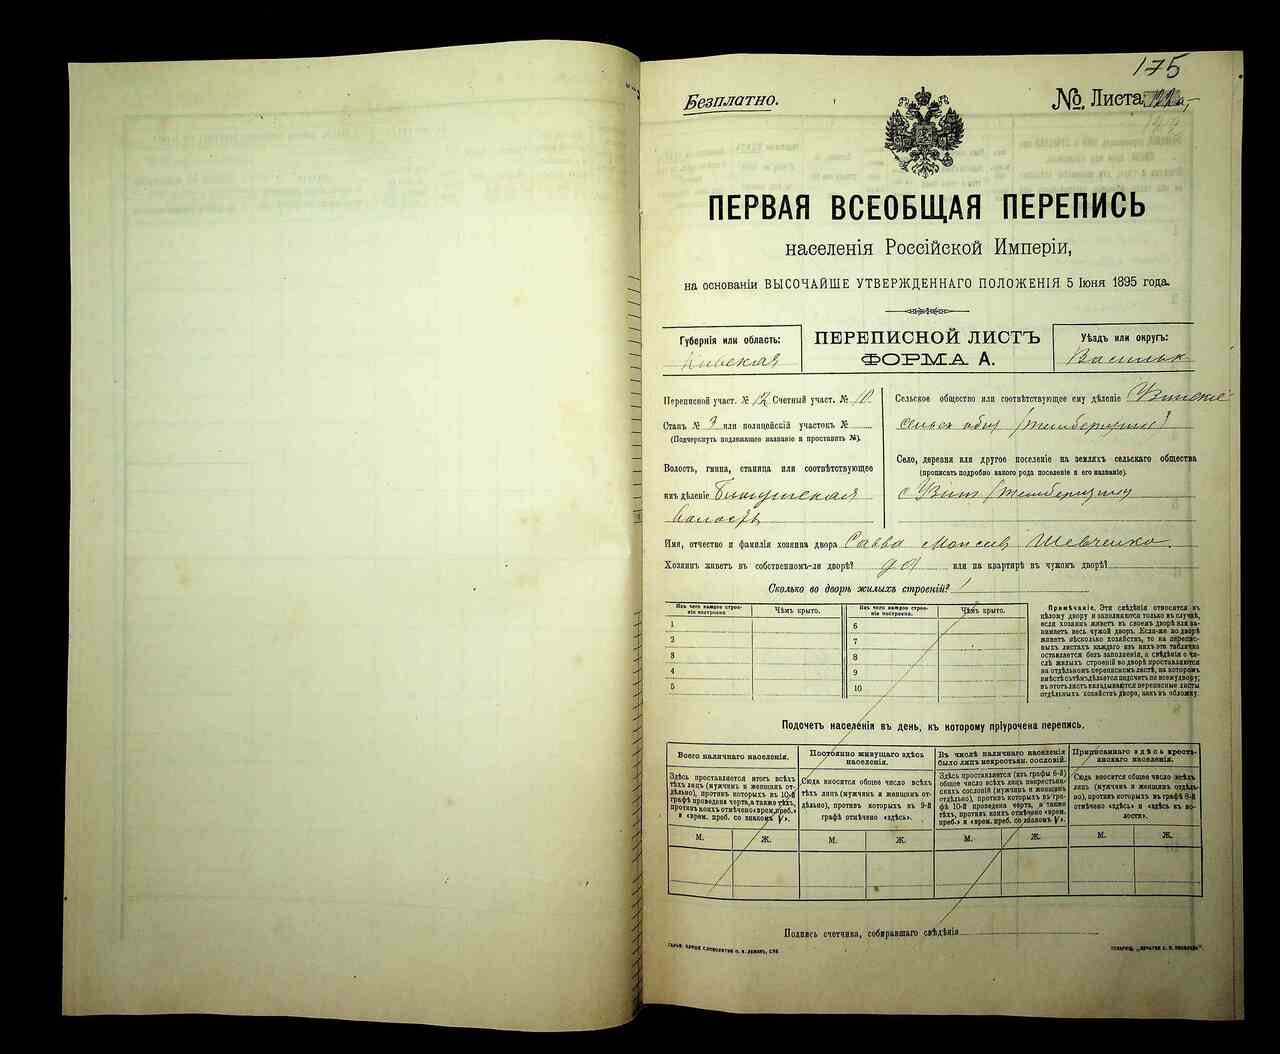 175
Безплатно.
№ Листа
ПЕРВАЯ ВСЕОБЩАЯ ПЕРЕПИСЬ
населенія Россійской Имперіи,
на основаніи ВЫСОЧАЙШЕ УТВЕРЖДЕННАГО ПОЛОЖЕНІЯ 5 Іюня 1895 года.
Губернія или область:
Кивская
ПЕРЕПИСНОЙ ЛИСТЪ
ФОРМА А.
Уѣздъ или округъ:
Васильк
Переписной участ. № 12 Счетный участ. № 10
Станъ № 3 или полицейскій участокъ №
(Подчеркнуть подлежащее названіе и проставить №).
Волость, гмина, станица или соотвѣтствующее
имъ дѣленіе
волость
Сельское общество или соотвѣтствующее ему дѣленіе
Село, деревня или другое поселеніе на земляхъ сельскаго общества
(прописать подробно какого рода поселеніе и его названіе).
с Узин
Имя, отчество и фамилія хозяина двора Савва Моисеев Шевченко.
Хозяинъ живетъ въ собственномъ-ли дворѣ? да или на квартирѣ въ чужомъ дворѣ?
Сколько во дворѣ жилыхъ строеній? 1
Изъ чего каждое строе-
ніе построено.
Чѣмъ крыто.
1
2
3
4
5
Изъ чего каждое строе-
ніе построено.
Чѣмъ крыто.
6
7
8
9
10
Примѣчаніе. Эти свѣдѣнія относятся къ
цѣлому двору и заполняются только въ случаѣ,
если хозяинъ живетъ въ своемъ дворѣ или за-
нимаетъ весь чужой дворъ. Если-же во дворѣ
живетъ нѣсколько хозяйствъ, то на перепис-
ныхъ листахъ каждаго изъ нихъ эта табличка
оставляется безъ заполненія, а свѣдѣнія о чи-
слѣ жилыхъ строеній во дворѣ проставляются
на отдѣльномъ переписномъ листѣ, на которомъ
вмѣстѣ съ тѣмъ дѣлается подсчетъ по всему двору;
въ этотъ листъ вкладываются переписные листы
отдѣльныхъ хозяйствъ двора, какъ въ обложку.
Подсчетъ населенія въ день, къ которому пріурочена перепись.
Всего наличнаго населенія.
Здѣсь проставляется итогъ всѣхъ
тѣхъ лицъ (мужчинъ и женщинъ от-
дѣльно), противъ которыхъ въ 10-й
графѣ проведена черта, а также тѣхъ,
противъ коихъ отмѣчено «врем. преб.»
и «врем. преб. со знакомъ V».
М. Ж.
Постоянно живущаго здѣсь
населенія.
Сюда вносится общее число всѣхъ
тѣхъ лицъ (мужчинъ и женщинъ от-
дѣльно), противъ которыхъ въ 9-й
графѣ отмѣчено «здѣсь».
М. Ж.
Въ числѣ наличнаго населенія
было лицъ некрестьян. сословій.
Здѣсь проставляется (изъ графы 6-й)
общее число всѣхъ лицъ некрестьян-
скихъ сословій (мужчинъ и женщинъ
отдѣльно), противъ которыхъ въ гра-
фѣ 10-й проведена черта, а также
тѣхъ, противъ коихъ отмѣчено «врем.
преб.» и «врем. преб. со знакомъ V».
М. Ж.
Приписаннаго здѣсь кресть-
янскаго населенія.
Сюда вносится общее число всѣхъ
лицъ (мужчинъ и женщинъ отдѣль-
но), противъ которыхъ въ графѣ 8-й
отмѣчено «здѣсь» и «здѣсь къ во-
лости».
М. Ж.
Подпись счетчика, собиравшаго свѣдѣнія